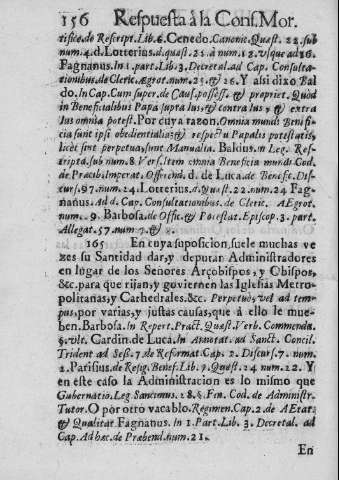 156 Respuesta à la Cons. Mor.
tifice.de Rescript. Lib.6. Cenedo. Canonic. Quæst. 22. sub
num. 4. d. Lotterius. d. quæst. 21. à num. 12. vsque ad 16.
Fagnanus. In 1. part. Lib. 3. Decretal. ad Cap. Consulta-
tionibus. de Cleric. Ægrot. num. 25. & 26. Y assi dixo Bal
do. In Cap. Cum super. de Caus. possess. & propriet. Quod
in Beneficialibus Papa supra ius, & contra ius, & extra
ius omnia potest. Por cuya razon, Omnia mundi Benefi
cia sunt ipsi obedientialia, & respectu Papalis potestatis,
licèt sint perpetua, sunt Manualia. Baldus. in Leg. Res-
cripta. sub num. 8 Vers. Item omnia Beneficia mundi Cod.
de Precib. Imperat. Offerend. d. de Luca. de Benefic. Dis-
curs. 97. num. 24. Lotterius. d. Quæst. 22. num. 24 Fag
nanus. Ad d. Cap. Consultationibus. de Cleric. AEgrot.
num. 9. Barbosa. de Offic. & Potestat. Episcop. 3. part.
Allegat. 57 num. 7. &
165 En cuya suposicion, suele muchas ve
zes su Santidad dar, y deputar Administradores
en lugar de los Señores Arçobispos, y Obispos,
&c. para que rijan, y goviernen las Iglesias Metro-
politanas, y Cathedrales. &c. Perpetuò, vel ad tem-
pus, por varias, y justas causas, que à ello le mue-
ben. Barbosa. In Repert. Pract. Quæst. Verb. Commenda.
§. vlt. Cardin. de Luca. In Annotat. ad Sanct. Concil.
Trident ad Sess. 7. de Reformat. Cap. 2. Discurs. 7. num.
2. Parisius. de Resig. Benef. Lib. 9. Quæst. 24 num. 22. Y
en este caso la Administracion es lo mismo que
Gubernatio. Leg Sancimus 28. §. Fin. Cod. de Administr.
Tutor. O por otro vacablo. Regimen. Cap. 2. de AEtat.
& Qualitat. Fagnanus. In 1. Part. Lib. 3. Decretal. ad
Cap. Ad hæc. de Præbend. num. 21.
En